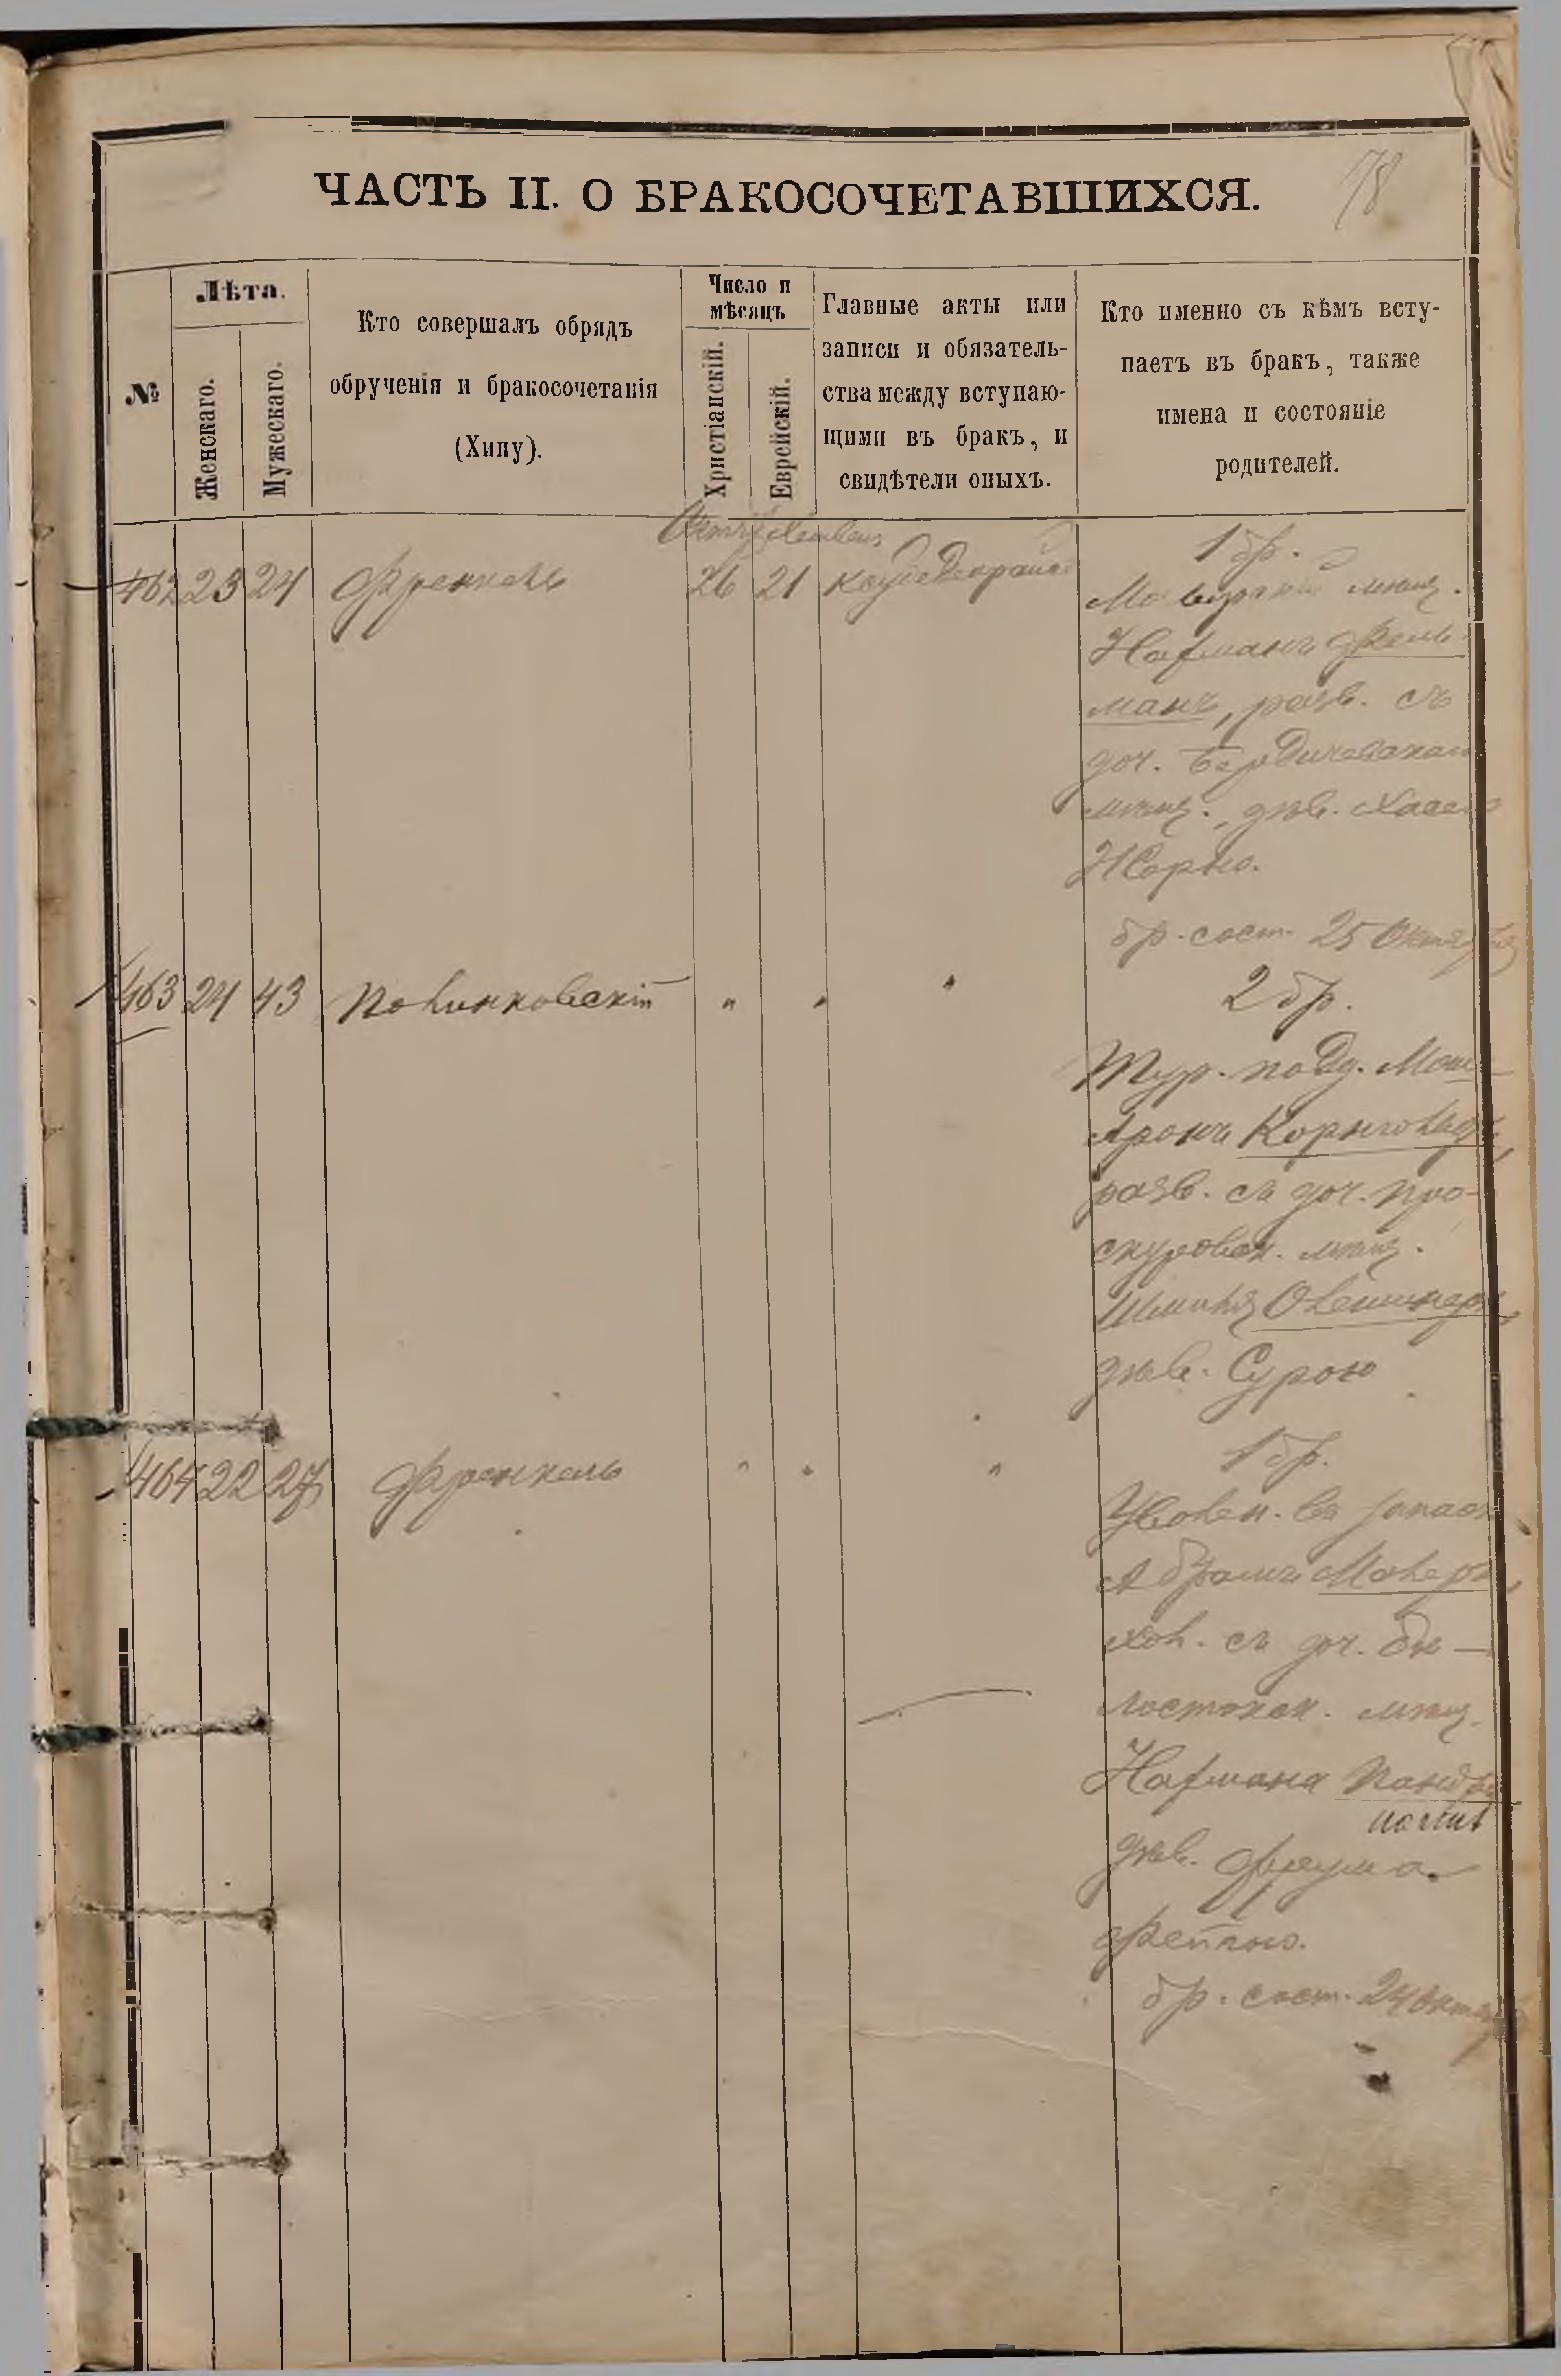 78
ЧАСТЬ II. О БРАКОСОЧЕТАВШИХСЯ.
№
Лѣта.
Женскаго.
Мужескаго.
Кто совершалъ обрядъ
обрученія и бракосочетанія
(Хипу).
Число и
мѣсяцъ
Христіанскій.
Еврейскій.
Главные акты или
записи и обязатель-
ства между вступаю-
щими въ бракъ, и
свидѣтели оныхъ.
Кто именно съ кѣмъ всту-
паетъ въ бракъ, также
имена и состояніе
родителей.
462 23 24 Френкель 26 21
1 бр.
мѣщ.
Нахманъ Фель-
манъ, разв. съ
доч. Бердичевскаго
мѣщ., дѣв. Хаею
бр. сост. 25 Октября
463 24 43 Полинковскій " " "
2 бр.
Тур. подд.
Аронъ Корнгольдъ,
разв. съ доч. Про-
скуровск. мѣщ.
Шмиля
дѣв. Сурою
464 22 27 Френкель " " "
1 бр.
Уволен. въ запасъ
Абрамъ Молеръ,
хол. съ доч. Бѣ-
лостокск. мѣщ.
Нахмана
дѣв. Фрума
Фейгою.
бр. сост. 24 Октяб